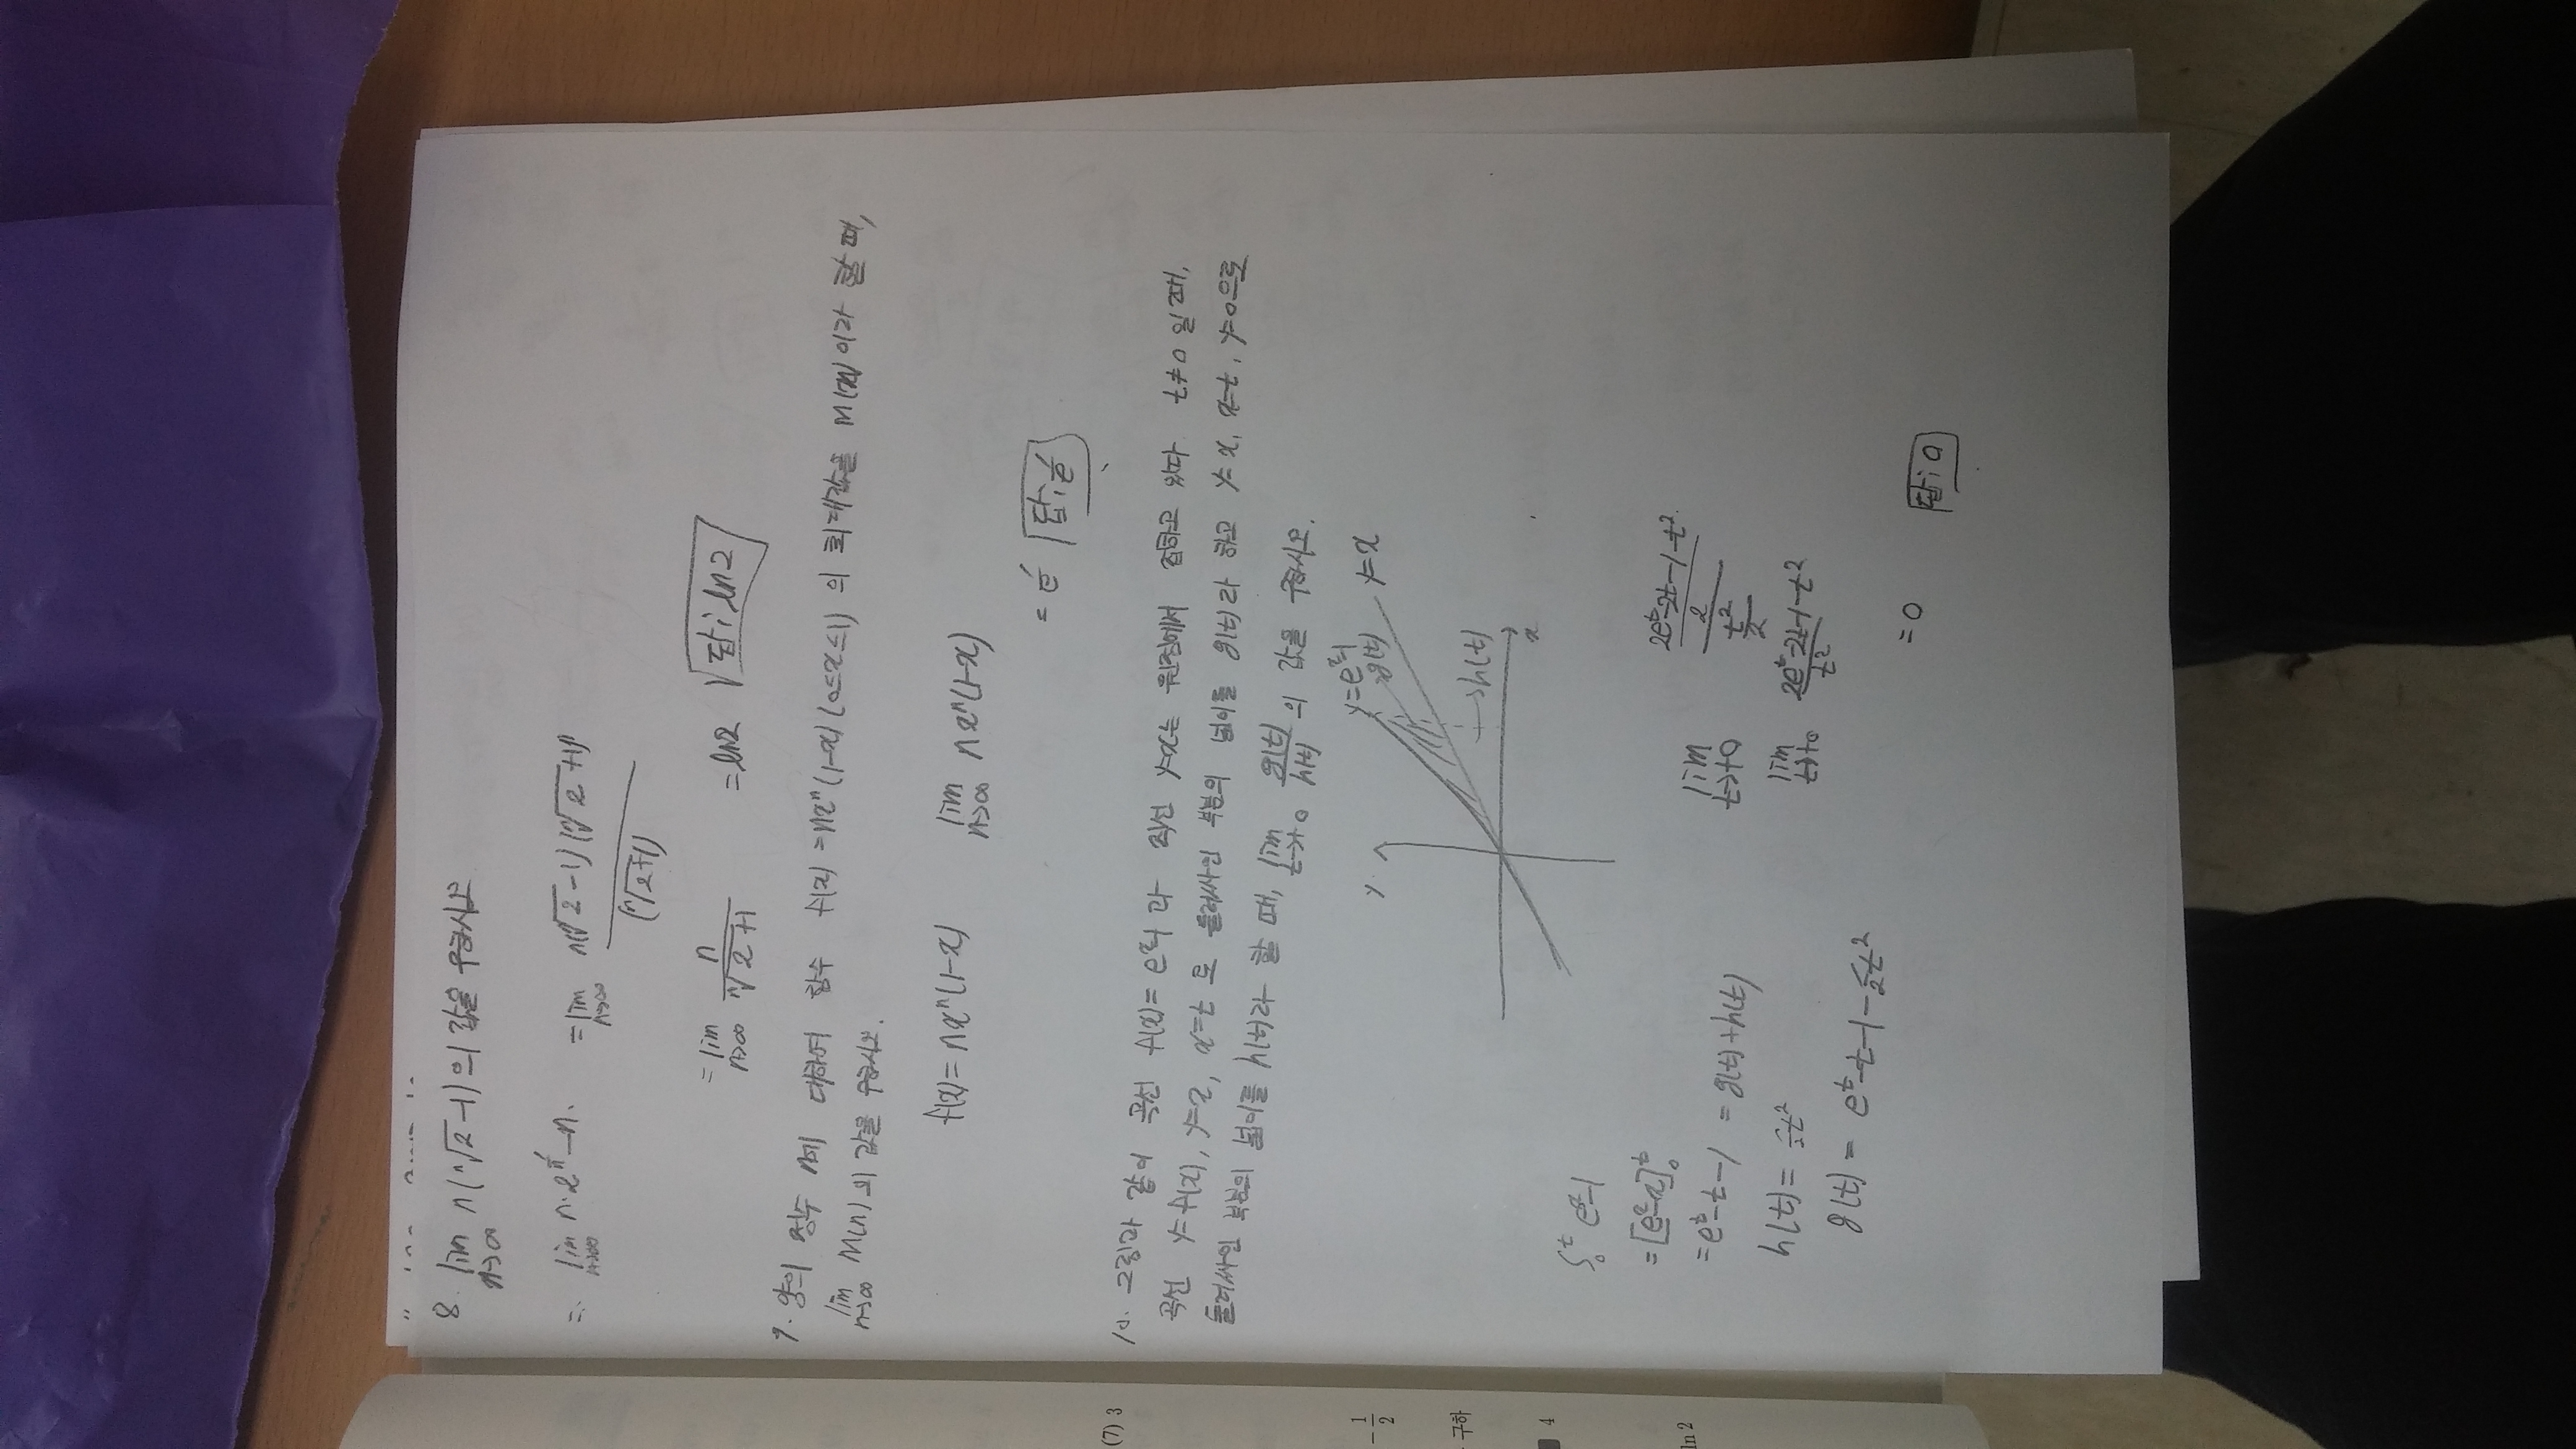 8. lim n→∞ n(ⁿ√2 -1)의 값을 구하시오
= lim n→∞ n·2^(1/n) -n. = lim n→∞ n(ⁿ√2 -1)(ⁿ√2 +1) / (ⁿ√2+1)
= lim n→∞ n / ⁿ√2 +1 = ln2 답: ln2
9. 양의 정수 n에 대하여 함수 f(x) = nxⁿ(1-x) (0≤x≤1) 의 최대값을 M(n) 이라 할 때,
lim n→∞ M(n) 의 값을 구하시오.
f(x) = nxⁿ(1-x) lim n→∞ nxⁿ(1-x)
= 1/e 답: 1/e
10. 그림과 같이 곡선 f(x) = eˣ-1 과 직선 y=x는 원점에서 접한다 t≠0 일 때,
곡선 y=f(x), y=x, x=t 로 둘러싸인 부분의 넓이를 g(t)라 하고 y=x, x=t, y=0으로
둘러싸인 부분의 넓이를 h(t)라 할 때, lim t→+0 g(t)/h(t) 의 값을 구하시오.
y
y=eˣ-1
g(t)
y=x
h(t)
x
∫₀ᵗ eˣ-1
= [eˣ-x]₀ᵗ
= eᵗ-t-1 = g(t)+h(t)
h(t) = ½t²
g(t) = eᵗ-t-1-½t²
lim t→+0 (2eᵗ-2t-1-t² / 2) / (t² / 2)
lim t→+0 2eᵗ-2t-1-t² / t²
= 0 답: 0
ln 2
4
구하
- 1/2
(7) 3